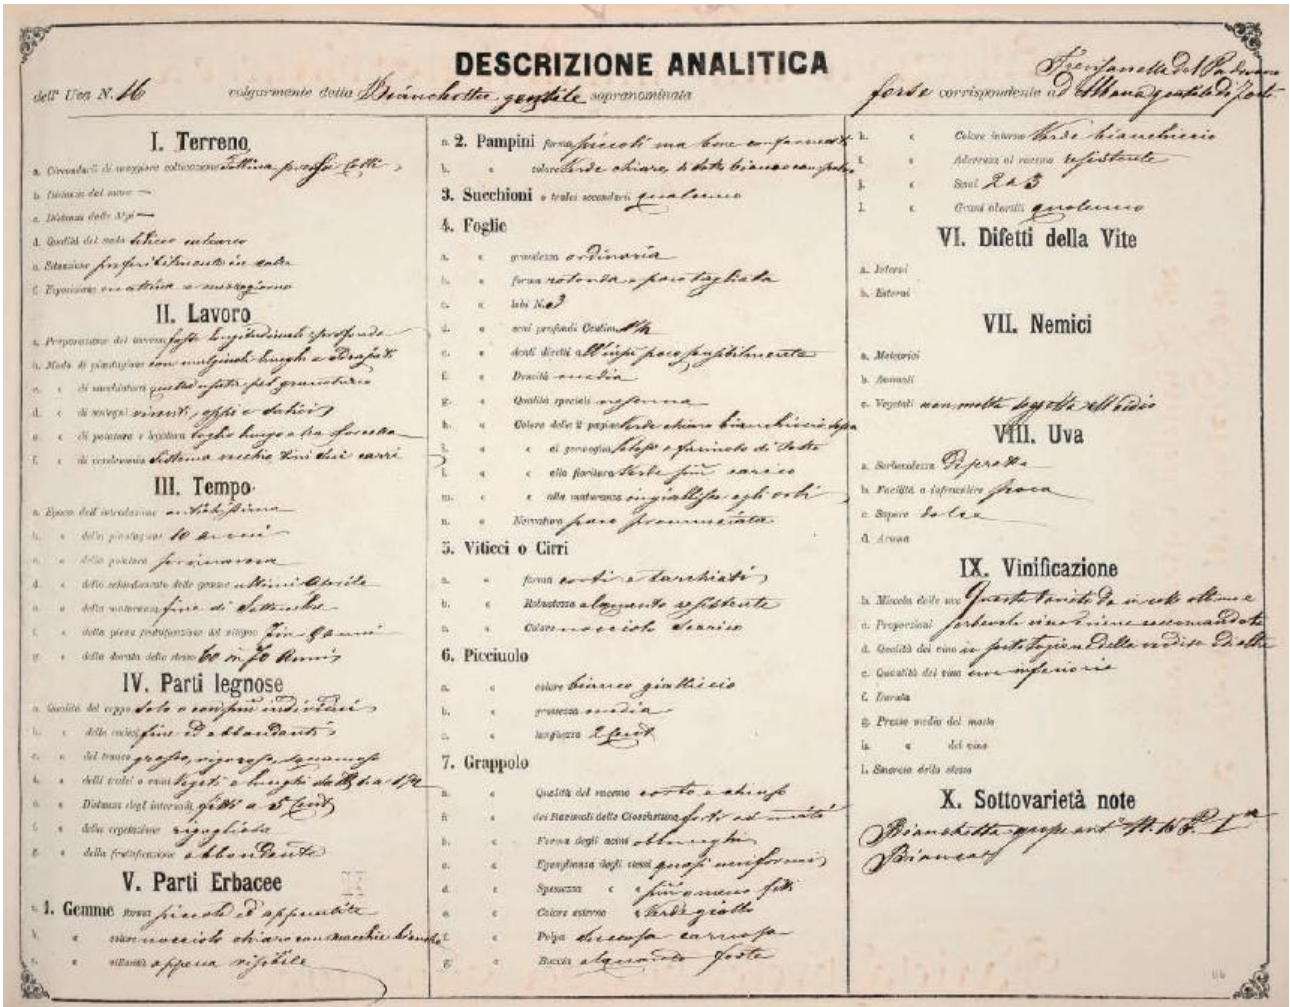 DESCRIZIONE ANALITICA
dell' Uva N. 16 volgarmente detta Bianchetta gentile sopranominata Trevisanella del Padovano
forse corrispondente ad Albana gentile di
I. Terreno
a. Circondarii di maggiore coltivazione Collina presso Colli
b. Distanza dal mare —
c. Distanza dalle Alpi —
d. Qualità del suolo siliceo calcareo
e. Situazione preferibilmente in colle
f. Esposizione mattina e mezzogiorno
II. Lavoro
a. Preparazione del terreno fosse longitudinali profonde
b. Modo di piantagione con magliuoli lunghi e
c. « di sarchiatura quella usata pel granoturco
d. « di sostegni viventi, oppi e salici
e. « di potatura e legatura taglio lungo a tre
f. « di vendemmia sistema vecchio, tini sui carri
III. Tempo
a. Epoca dell'introduzione antichissima
b. « della piantagione 10 anni
c. « della potatura primavera
d. « dello sbocciamento delle gemme ultimi Aprile
e. « della maturanza fine di Settembre
f. « della piena fruttificazione del vitigno
g. « della durata dello stesso 60 in 70 anni
IV. Parti legnose
a. Qualità del ceppo solo o con più individui
b. « delle radici fine ed abbondanti
c. « del tronco grosso, vigoroso, squamoso
d. « delli tralci o rami vegeti e lunghi da
e. « Distanza degl'internodi fitti a 5 Cent
f. « della vegetazione rigogliosa
g. « della fruttificazione abbondante
V. Parti Erbacee
1. Gemme forma piccole ed appuntite
« colore nocciolo chiaro con macchie bianche
« villosità appena visibile
a. 2. Pampini forma piccoli ma bene conformati
b. « colore verde chiaro, di sotto bianco
3. Succhioni o tralci secondarii qualcuno
4. Foglie
a. « grandezza ordinaria
b. « forma rotonda e poco tagliata
c. « lobi N. 3
d. « seni profondi Centim. 1 1/2
e. « denti diretti all'insù poco sensibilmente
f. « Densità media
g. « Qualità speciali nessuna
h. « Colore delle 2 pagine verde chiaro bianchiccio
i. « « al germoglio
l. « « alla fioritura verde più carico
m. « « alla maturanza ingiallisce agli orli
n. « Nervatura poco pronunciata
5. Viticci o Cirri
a. « forma corti e tarchiati
b. « Robustezza alquanto resistente
c. « Colore nocciolo scarico
6. Picciuolo
a. « colore bianco gialliccio
b. « grossezza media
c. « lunghezza 2 Cent
7. Grappolo
a. « Qualità del racemo corto e chiuso
« dei Racimoli delle Ciocchettine
b. « Forma degli acini oblunghi
c. « Eguaglianza degli stessi quasi uniformi
d. « Spessezza « « più o meno fitti
e. « Colore esterno « verde giallo
f. « Polpa succosa carnosa
g. « Buccia alquanto forte
h. « Colore interno verde bianchiccio
i. « Aderenza al racemo resistente
j. « Semi 2 a 3
l. « Grani abortiti qualcuno
VI. Difetti della Vite
a. Interni
b. Esterni
VII. Nemici
a. Meteorici
b. Animali
c. Vegetali non molto soggetta all'oidio
VIII. Uva
a. Serbevolezza discreta
b. Facilità a infracidire poca
c. Sapore dolce
d. Aroma
IX. Vinificazione
b. Miscela delle uve Questa varietà dà in colle ottimo e
c. Proporzioni serbevole vino e viene raccomandata
d. Qualità del vino in sostituzione della verdise ed altre
e. Quantità del vino uve inferiori
f. Durata
g. Prezzo medio del mosto
h. « del vino
l. Smercio dello stesso
X. Sottovarietà note
Bianchetta
Bianca